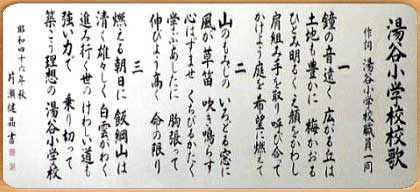 湯谷小学校校歌
作詞 湯谷小学校職員一同
一
鐘の音遠く 広がる丘は
土地も豊かに 梅かおる
ひとみ明るく 顔をかわし
肩組み手を取り 呼び合って
かけよう庭を 希望に燃えて
二
山のもみじの いろどる窓に
風が草笛 吹き鳴らす
心はずませ くちびるかたく
学ぶあしたに 胸張って
伸びよう高く 命の限り
三
燃える朝日に 飯綱山は
清く雄々しく 白雲がわく
進み行く世の けわしい道も
強い力で 乗り切って
築こう理想の 湯谷小学校
昭和四十六年秋
片瀬健晶書